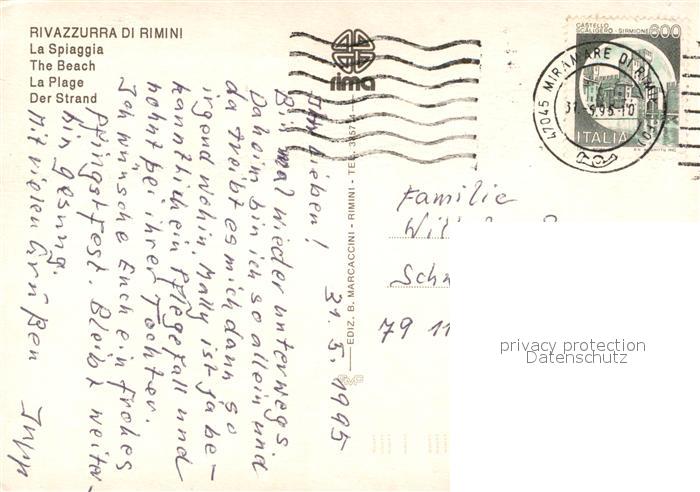 RIVAZZURRA DI RIMINI
La Spiaggia
The Beach
La Plage
Der Strand
rima
EDIZ. B. MARCACCINI - RIMINI - TEL.
CASTELLO
SCALIGERO - SIRMIONE
600
ITALIA
47045 MIRAMARE DI RIMINI (FO)
31.5.1995
Ihr Lieben!
Bin mal wieder unterwegs.
Daheim bin ich so allein und
da treibt es mich dann so
irgendwohin. Mally ist ja be-
kanntlich ein Pflegefall und
wohnt bei ihrer Tochter.
Ich wünsche Euch ein frohes
Pfingstfest. Bleibt weiter-
hin gesund.
Mit vielen Grüßen
Familie
79 11
privacy protection
Datenschutz